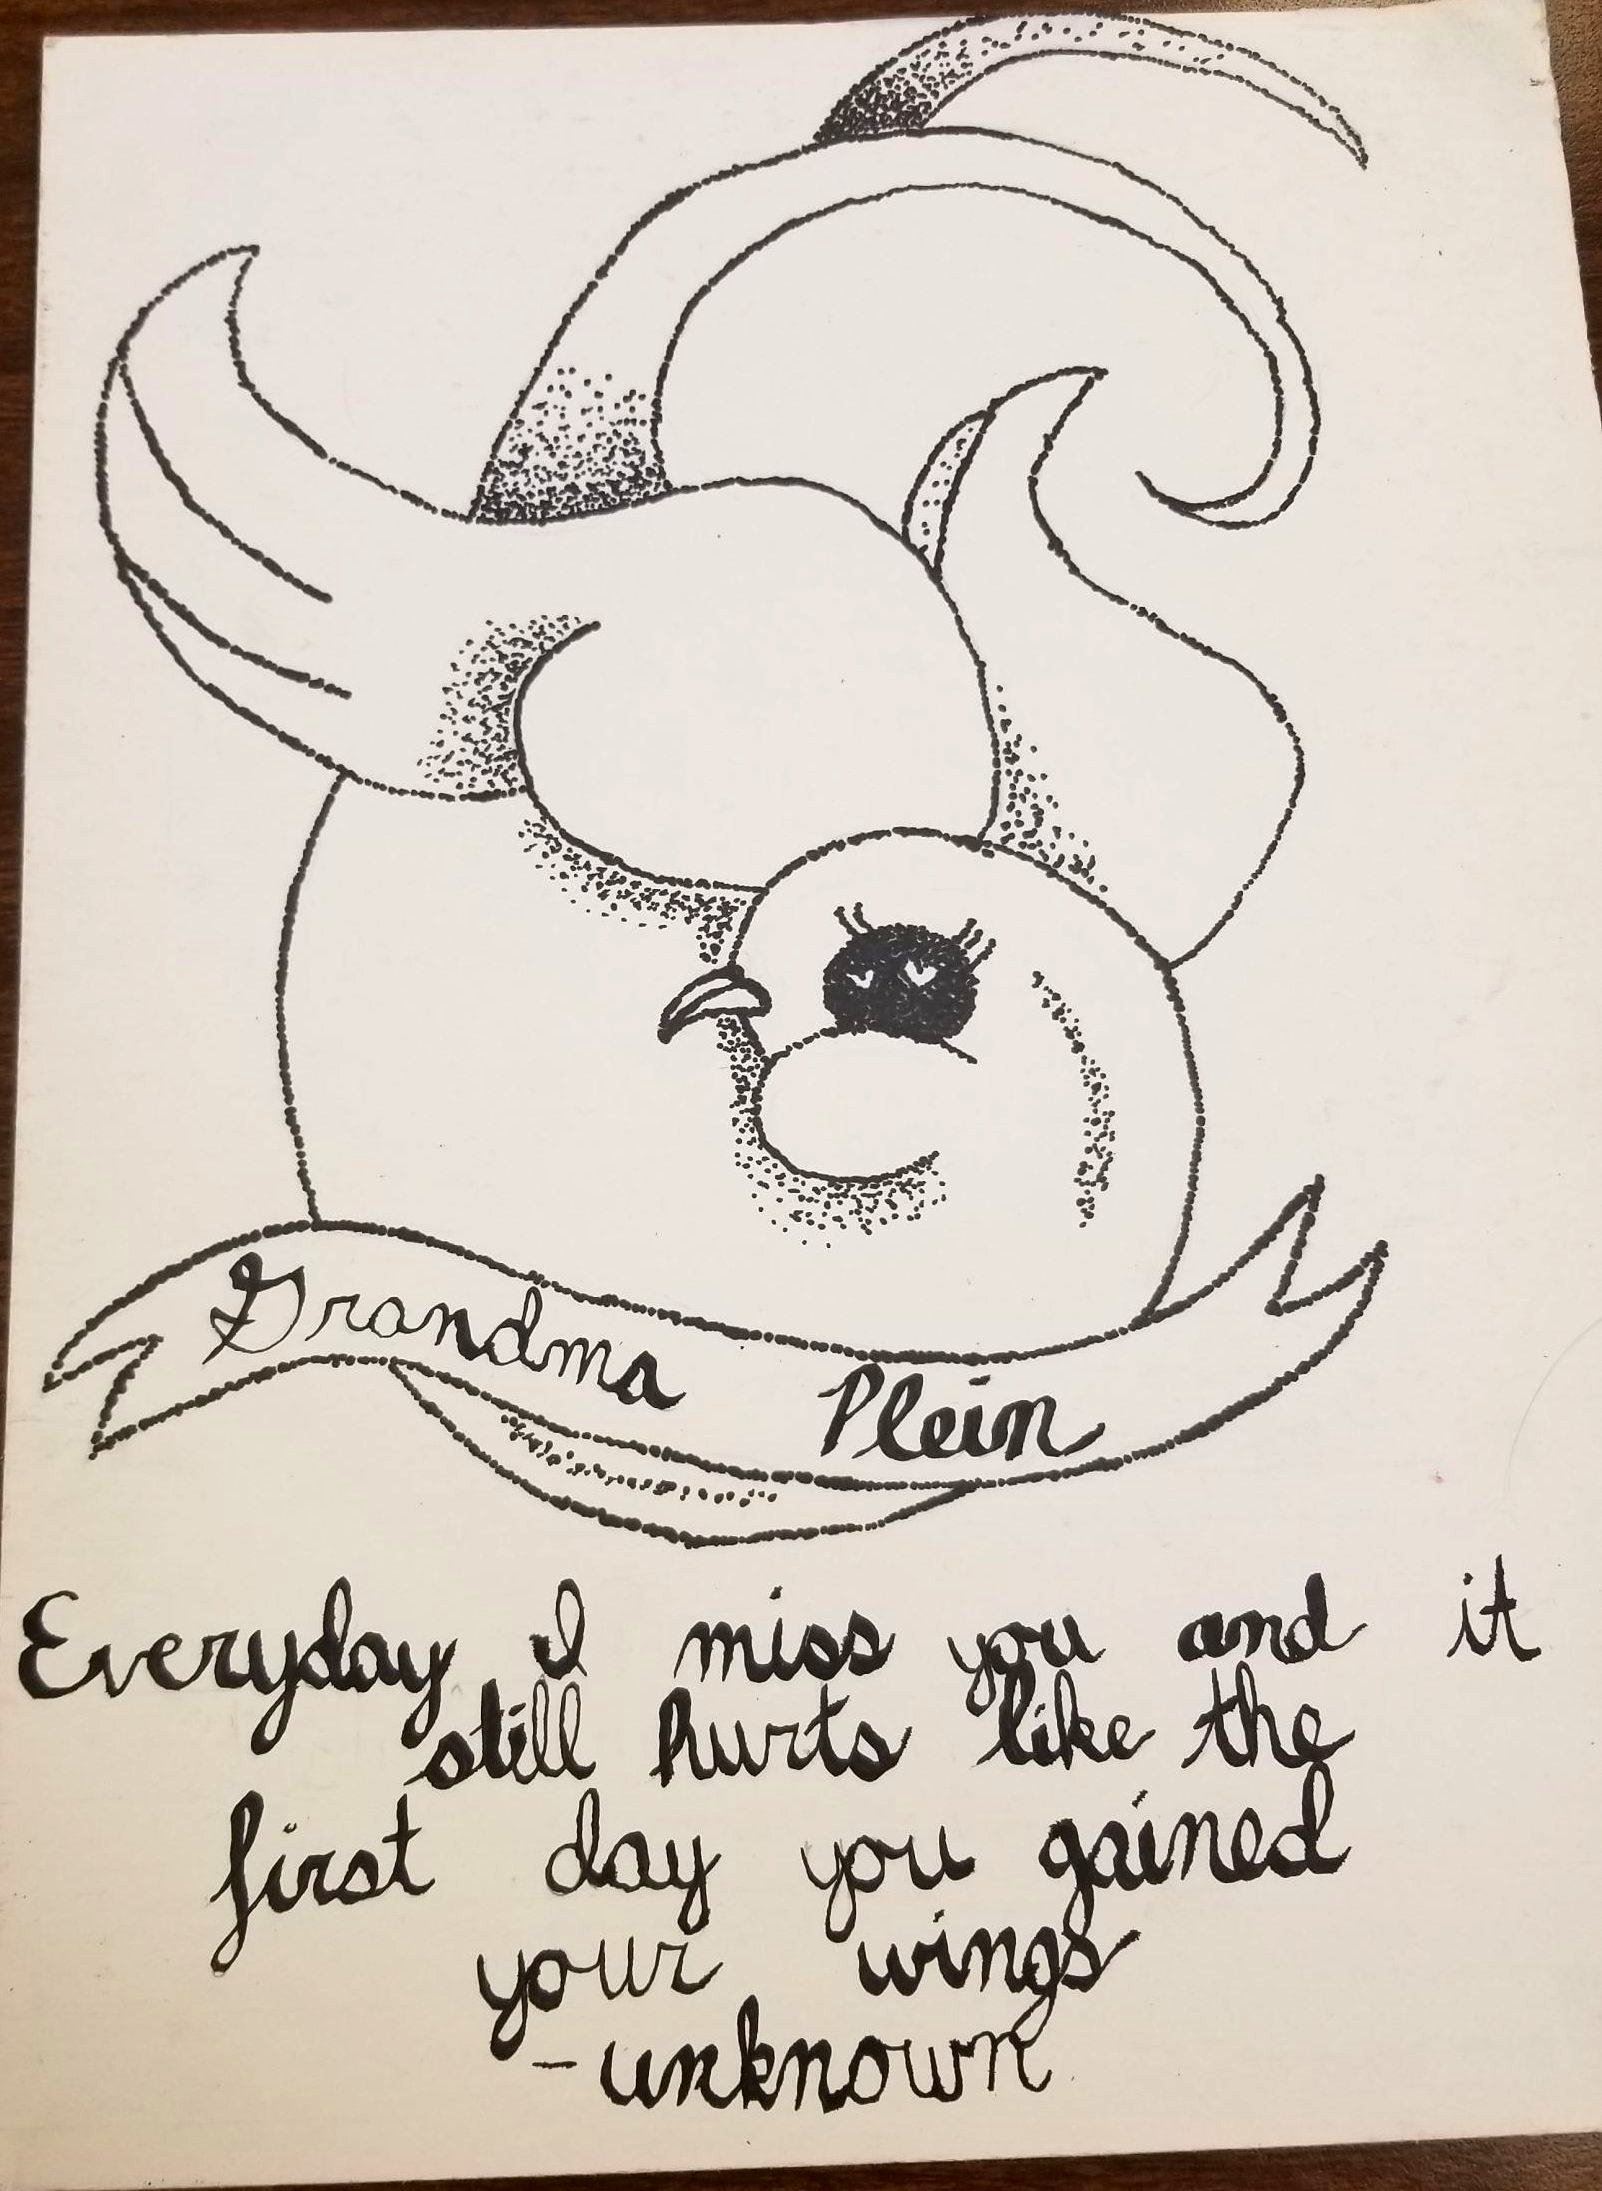 Grandma Plein
Everyday I miss you and it
still hurts like the
first day you gained
your wings
-unknown